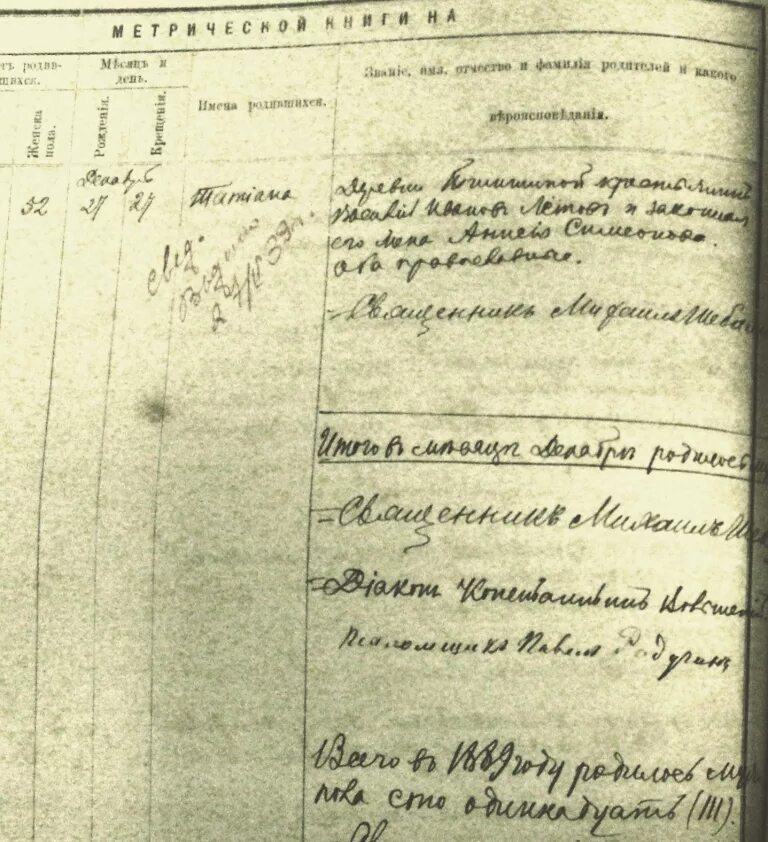 МЕТРИЧЕСКОЙ КНИГИ НА
родив-
шихся.
Женска
пола.
Мѣсяцъ и
день.
Рожденія.
Крещенія.
Имена родившихся.
Званіе, имя, отчество и фамилія родителей и какого
вѣроисповѣданія.
Декабр
52
27
27
Татіана
Деревни крестьянинъ
Василій Ивановъ Лѣтовъ и законная
его жена Симеонова.
оба православные.
Священникъ Михаилъ
свід.
Выдано
27/IV 39 г.
Итого въ мѣсяцѣ Декабрѣ родилось
Священникъ Михаилъ
Діаконъ Константинъ
Псаломщикъ Павелъ
Всего въ 1889 году родилось
пола сто одиннадцать (111).